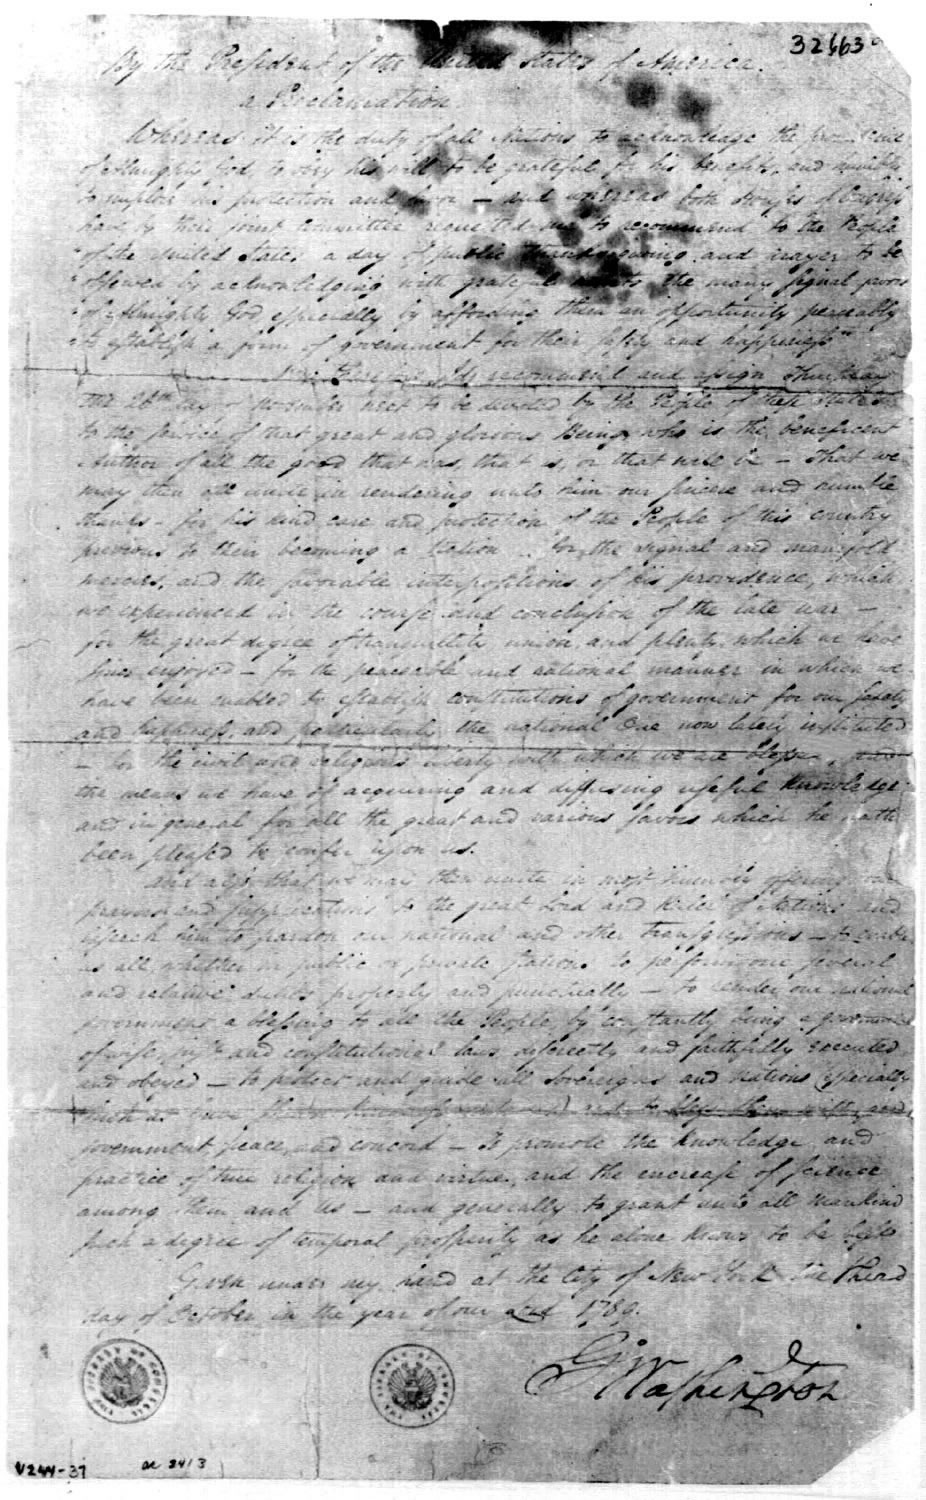 32663
By the President of the United States of America.
a Proclamation.
Whereas it is the duty of all Nations to acknowledge the providence
of Almighty God, to obey his will, to be grateful for his benefits, and humbly
to implore his protection and favor — and whereas both Houses of Congress
have by their joint Committee requested me to recommend to the People
of the United States a day of public thanksgiving and prayer to be
observed by acknowledging with grateful hearts the many signal favors
of Almighty God especially by affording them an opportunity peaceably
to establish a form of government for their safety and happiness"
Now therefore I do recommend and assign Thursday
the 26th day of November next to be devoted by the People of these States
to the service of that great and glorious Being, who is the beneficent
Author of all the good that was, that is, or that will be — That we
may then all unite in rendering unto him our sincere and humble
thanks — for his kind care and protection of the People of this country
previous to their becoming a Nation — for the signal and manifold
mercies, and the favorable interpositions of his providence, which
we experienced in the course and conclusion of the late war —
for the great degree of tranquillity, union, and plenty, which we have
since enjoyed — for the peaceable and rational manner in which we
have been enabled to establish constitutions of government for our safety
and happiness, and particularly the national One now lately instituted
— for the civil and religious liberty with which we are blessed, and
the means we have of acquiring and diffusing useful knowledge
and in general for all the great and various favors which he hath
been pleased to confer upon us.
And also that we may then unite in most humbly offering our
prayers and supplications to the great Lord and Ruler of Nations and
beseech him to pardon our national and other transgressions — to enable
us all, whether in public or private stations, to perform our several
and relative duties properly and punctually — to render our national
government a blessing to all the People, by constantly being a government
of wise, just and constitutional laws, discreetly and faithfully executed
and obeyed — to protect and guide all Sovereigns and Nations (especially
such as have shown kindness unto us) and to bless them with good
government, peace, and concord — To promote the knowledge and
practice of true religion and virtue, and the encrease of science
among them and Us — and generally to grant unto all mankind
such a degree of temporal prosperity as he alone knows to be best.
Given under my hand at the City of New York the third
day of October in the year of our Lord 1789.
G: Washington
V244-37
ac 2413